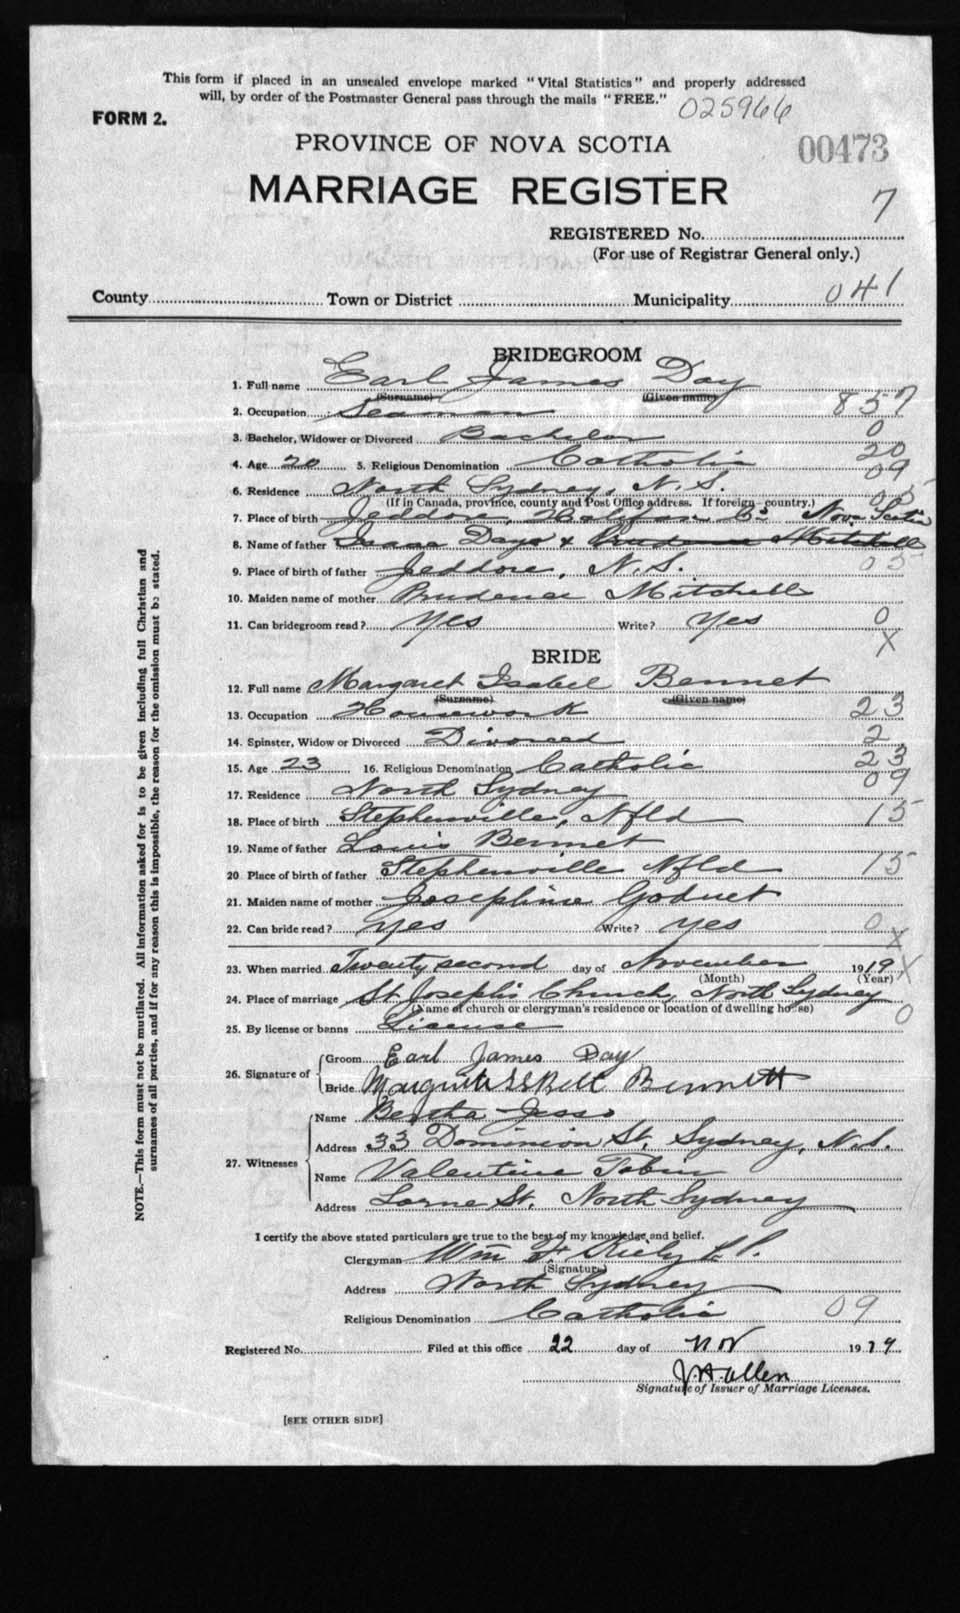 This form if placed in an unsealed envelope marked "Vital Statistics" and properly addressed
will, by order of the Postmaster General pass through the mails "FREE."
025966
FORM 2.
PROVINCE OF NOVA SCOTIA
00473
MARRIAGE REGISTER
7
REGISTERED No.
(For use of Registrar General only.)
County Town or District Municipality 041
BRIDEGROOM
1. Full name Earl James Day
(Surname) (Given name)
2. Occupation Seaman 857
3. Bachelor, Widower or Divorced Bachelor 0
4. Age 20 5. Religious Denomination Catholic 20
09
6. Residence North Sydney, N.S.
(If in Canada, province, county and Post Office address. If foreign—country.)
7. Place of birth Jeddore, Halifax Co Nova Scotia
8. Name of father Isaac Day & Prudence Mitchell
9. Place of birth of father Jeddore, N.S. 05
10. Maiden name of mother Prudence Mitchell
11. Can bridegroom read? Yes Write? Yes 0
X
BRIDE
12. Full name Margaret Isabel Bennet
(Surname) (Given name)
13. Occupation Housework 23
14. Spinster, Widow or Divorced Divorced 2
15. Age 23 16. Religious Denomination Catholic 23
17. Residence North Sydney 09
18. Place of birth Stephenville, Nfld 15
19. Name of father Louis Bennet
20. Place of birth of father Stephenville Nfld 15
21. Maiden name of mother Josephine Goduet
22. Can bride read? Yes Write? Yes 0
X
23. When married Twenty second day of November 1919 X
(Month) (Year)
24. Place of marriage St. Joseph's Church, North Sydney
(Name of church or clergyman's residence or location of dwelling house) 0
25. By license or banns License
26. Signature of
Groom Earl James Day
Bride Bennett
27. Witnesses
Name Bertha Jesso
Address 33 Dominion St. Sydney, N.S.
Name Valentine Tobin
Address Lorne St. North Sydney
I certify the above stated particulars are true to the best of my knowledge and belief.
Clergyman Wm F. Kiely P.P.
(Signature)
Address North Sydney
Religious Denomination Catholic 09
Registered No. Filed at this office 22 day of Nov 1919
J. A. Allen
Signature of Issuer of Marriage Licenses.
[SEE OTHER SIDE]
NOTE.—This form must not be mutilated. All information asked for is to be given including full Christian and
surnames of all parties, and if for any reason this is impossible, the reason for the omission must be stated.